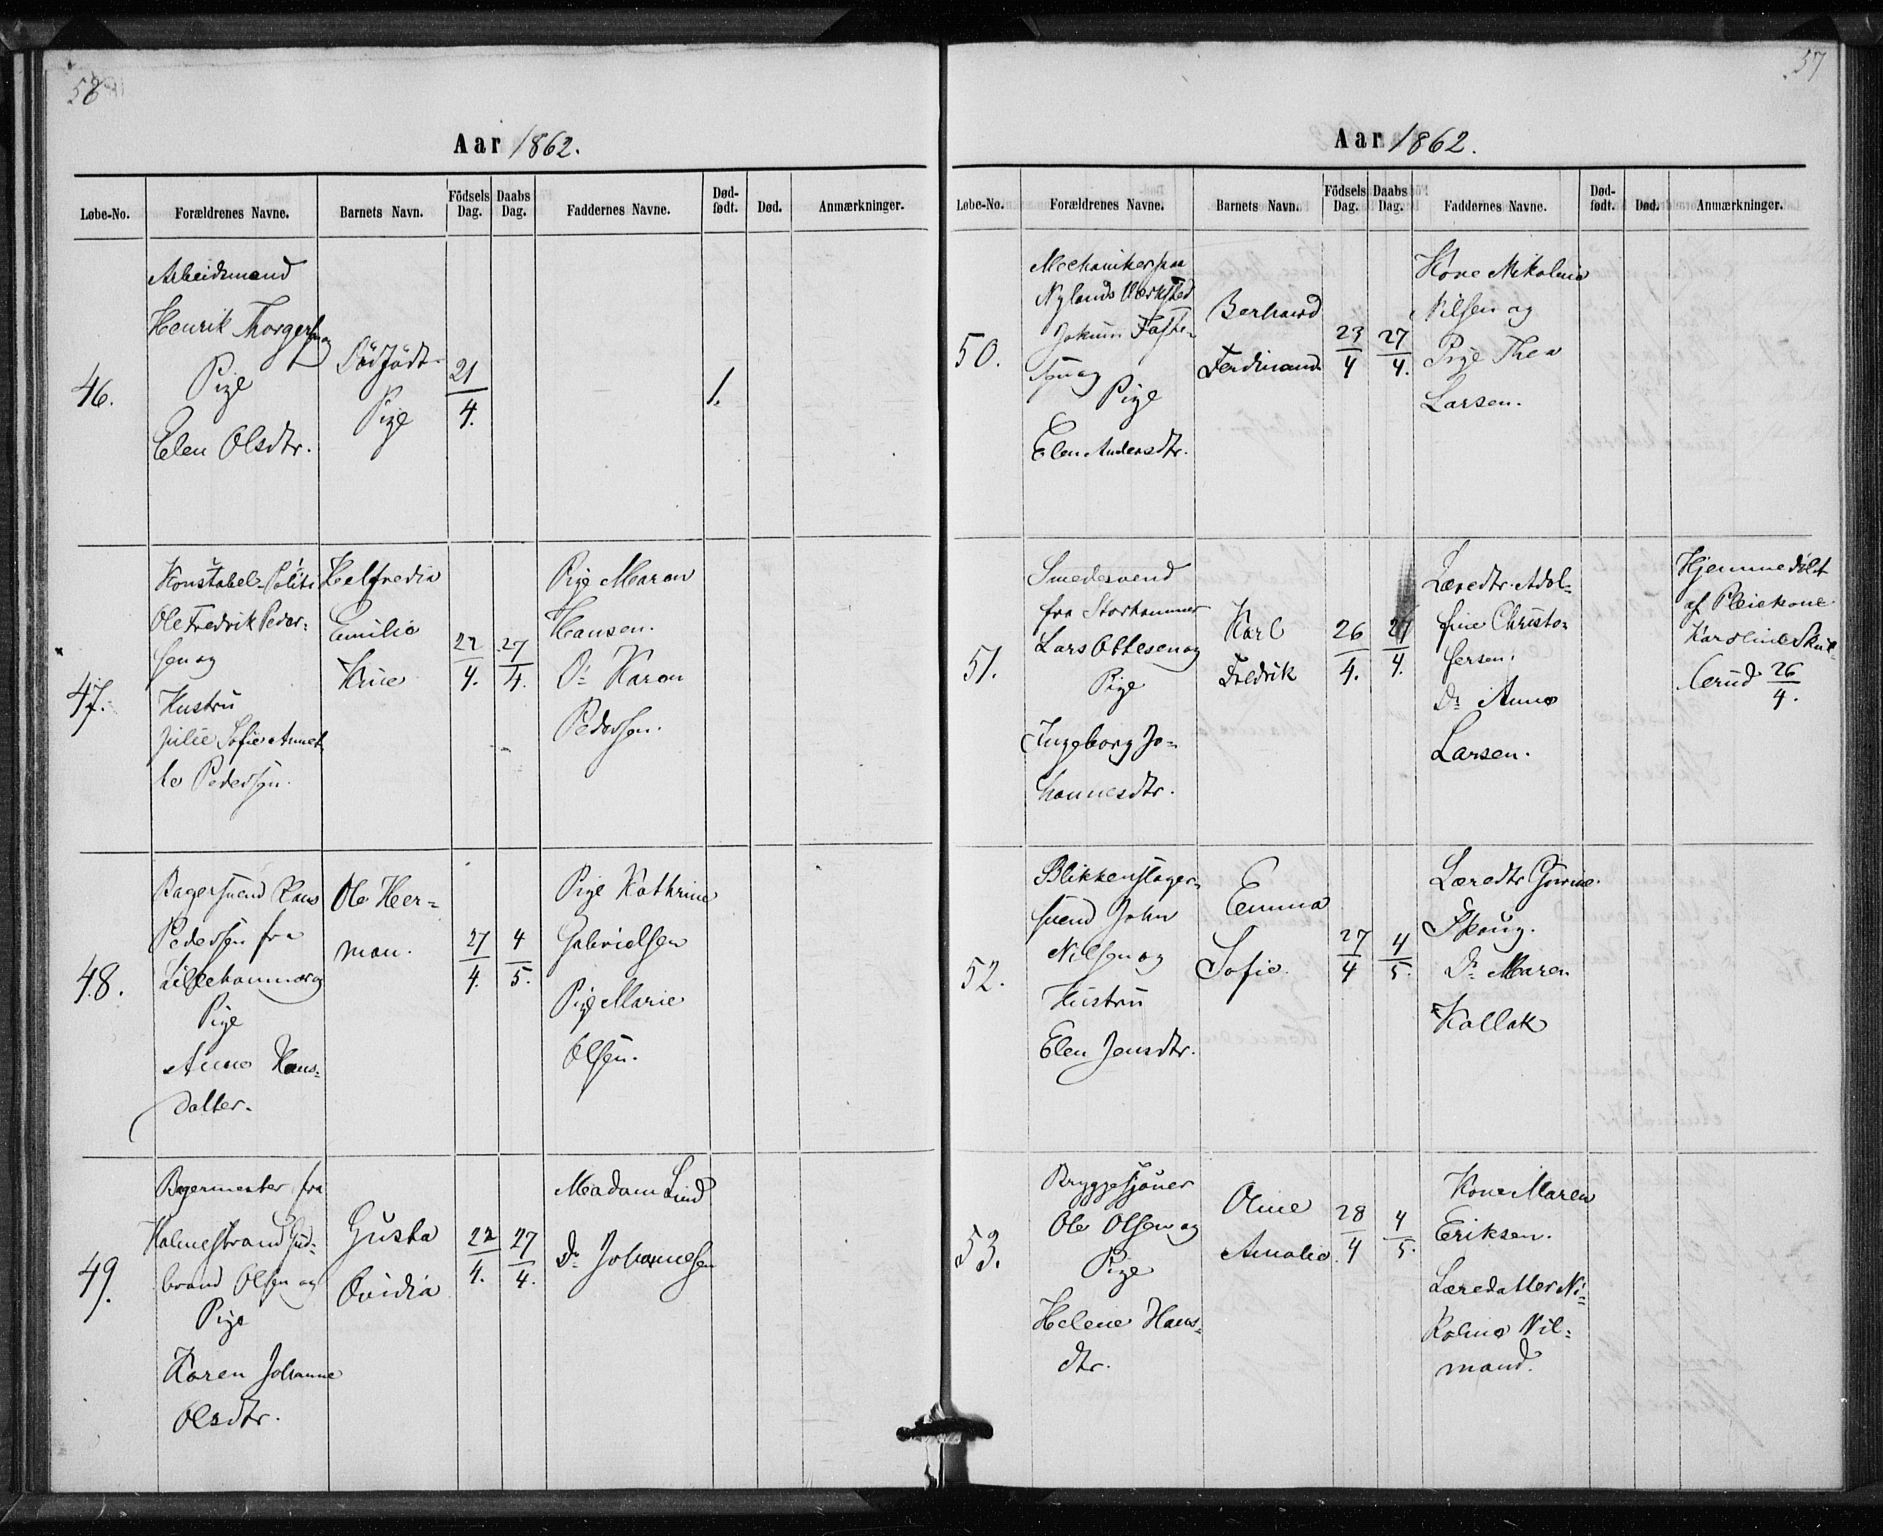 58
Aar 1862.
Løbe-No. Forældrenes Navne. Barnets Navn. Födsels Dag. Daabs Dag. Faddernes Navne. Død-født. Død. Anmærkninger.
46.
Arbeidsmand
Henrik Thorgersen og
Pige
Elen Olsdtr.
Dödfödt
Pige
21/4.
1.
47.
Konstabel Politi
Ole Fredrik Peder-
sen og
Hustru
Julie Sofie Annet
te Pedersen.
Helfredia
Emilie
Trine
22/4. 27/4.
Pige Maren
Hansen.
Do Karen
Pedersen.
48.
Bagersvend Hans
Pedersen fra
Lillehammer og
Pige
Anne Hans-
datter.
Ole Her-
man.
27/4. 4/5.
Pige Kathrine
Gabrielsen
Pige Marie
Olsen.
49.
Bagermester fra
Holmestrand Gud-
brand Olsen og
Pige
Karen Johanne
Olsdtr.
Gusta
Ovidia
22/4. 27/4.
Madam Lind
Do Johannesen
57
Aar 1862.
Løbe-No. Forældrenes Navne. Barnets Navn. Födsels Dag. Daabs Dag. Faddernes Navne. Død-født. Død. Anmærkninger.
50.
Mechaniker paa
Nylands Værksted
Jokum
og
Pige
Elen Andersdtr.
Berhard
Ferdinand
23/4 27/4.
Kone Nikoline
Nilsen og
Pige Thea
Larsen.
51.
Smedesvend
fra Storhammer
Lars Ottesen og
Pige
Ingeborg Jo-
hannesdtr.
Karl
Fredrik
26/4. 27/4.
Læredtr. Adol-
fine Christo-
fersen.
Do Anne
Larsen.
Hjemmedöbt
af Pleiekone
Karoline Skul-
lerud 26/4.
52.
Blikkenslager-
svend John
Nilsen og
Hustru
Elen Jensdtr.
Emma
Sofie.
27/4 4/5.
Læredtr
Skoug.
Do Maren
Kollok
53.
Bryggesjouer
Ole Olsen og
Pige
Helene Hans-
dtr.
Oline
Amalie.
28/4 4/5.
Kone Maren
Eriksen.
Læredatter Ni-
koline Nil-
mand.